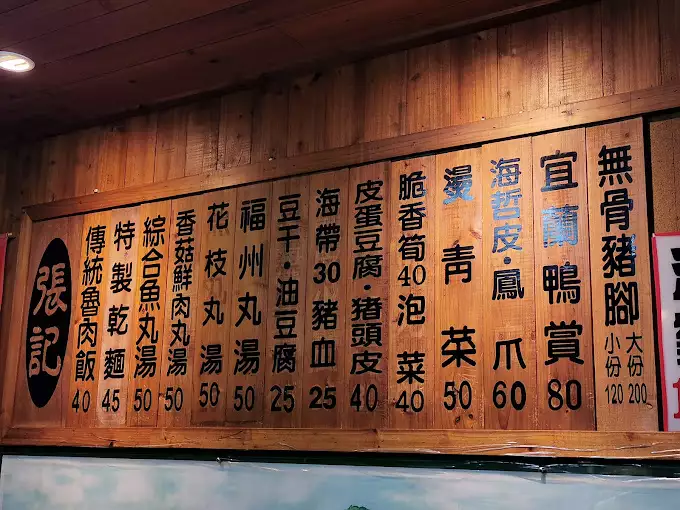 無骨豬腳 大份200 小份120
宜蘭鴨賞 80
海哲皮·鳳爪 60
燙青菜 50
脆香筍40泡菜 40
皮蛋豆腐·猪頭皮 40
海帶30豬血 25
豆干·油豆腐 25
福州丸湯 50
花枝丸湯 50
香菇鮮肉丸湯 50
綜合魚丸湯 50
特製乾麵 45
傳統魯肉飯 40
張記